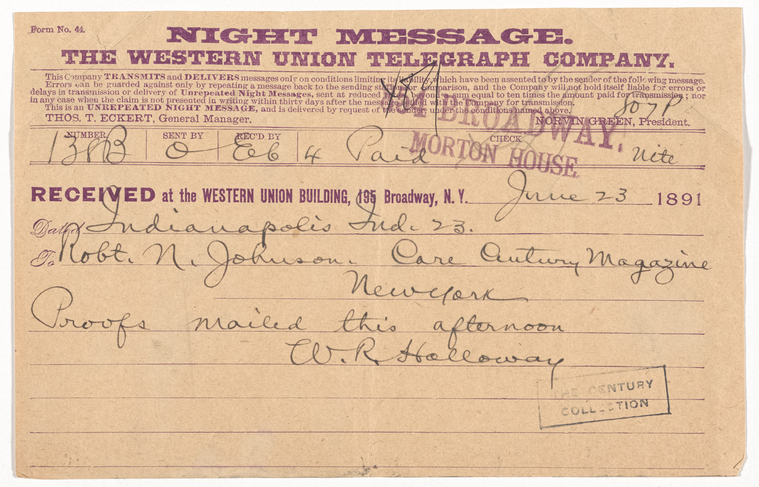 Form No. 44.
NIGHT MESSAGE.
THE WESTERN UNION TELEGRAPH COMPANY.
This Company TRANSMITS and DELIVERS messages only on conditions limiting its liability, which have been assented to by the sender of the following message.
Errors can be guarded against only by repeating a message back to the sending station for comparison, and the Company will not hold itself liable for errors or
delays in transmission or delivery of Unrepeated Night Messages, sent at reduced rates, beyond a sum equal to ten times the amount paid for transmission; nor
in any case when the claim is not presented in writing within thirty days after the message is filed with the Company for transmission.
This is an UNREPEATED NIGHT MESSAGE, and is delivered by request of the sender, under the conditions named above.
THOS. T. ECKERT, General Manager. NORVIN GREEN, President.
807P
BROADWAY.
MORTON HOUSE
NUMBER SENT BY REC'D BY CHECK
138B O Eb 4 Paid Nite
RECEIVED at the WESTERN UNION BUILDING, 195 Broadway, N. Y. June 23 1891
Dated Indianapolis Ind. 23.
To Robt. N. Johnson. Care Century Magazine
New York
Proofs mailed this afternoon
W. R. Holloway
THE CENTURY
COLLECTION